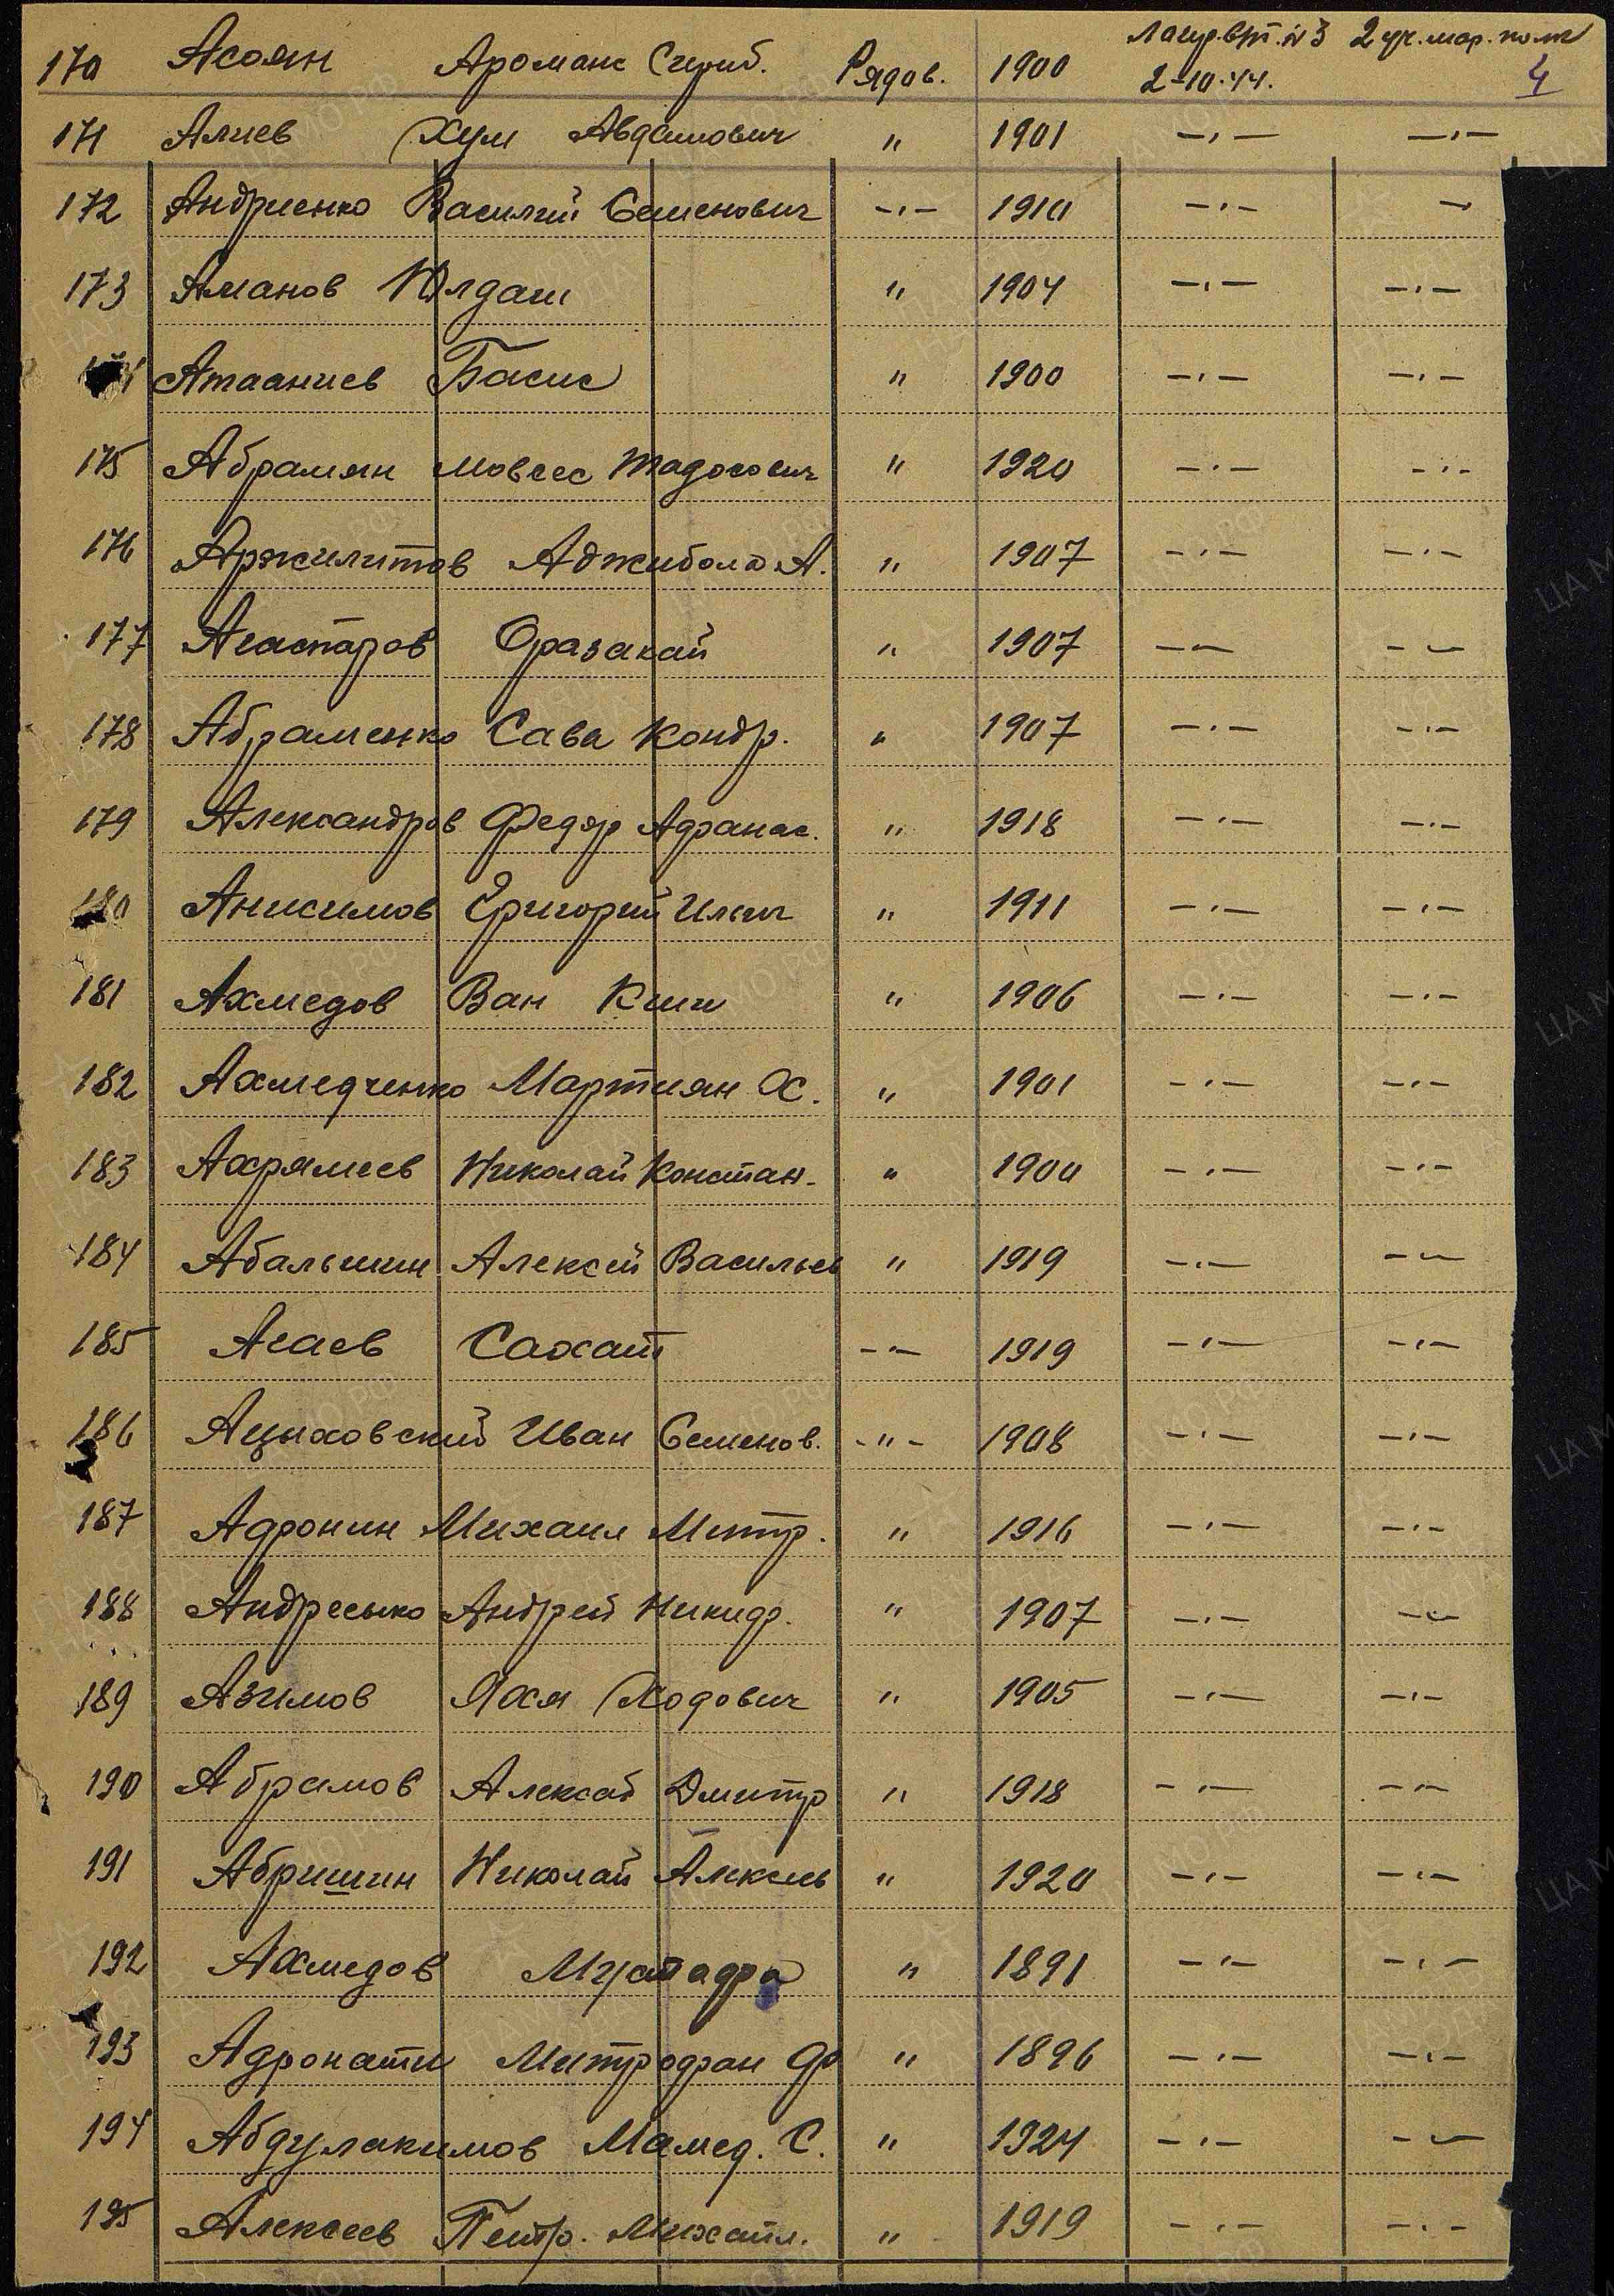 170 Асоян Аромаис Сприд. Рядов. 1900 лагер. вт. N 3 2-10.44. 2 уч. мар. полк 4
171 Алиев Хум Авдалович " 1901 -"- -"-
172 Андриенко Василий Семенович -"- 1910 -"- -"-
173 Аманов Юлдаш " 1904 -"- -"-
174 Атааниев Басис " 1900 -"- -"-
175 Абрамян Мовсес Тадосович " 1920 -"- -"-
176 Аржилитов Аджибола А. " 1907 -"- -"-
177 Агаспаров Оразакай " 1907 -"- -"-
178 Абраменко Сава Кондр. " 1907 -"- -"-
179 Александров Федор Афанас. " 1918 -"- -"-
180 Анисимов Григорий Ильич " 1911 -"- -"-
181 Ахмедов Ван Киши " 1906 -"- -"-
182 Ахмедченко Мартиян Х. " 1901 -"- -"-
183 Ахрямеев Николай Констан. " 1900 -"- -"-
184 Абальшин Алексей Васильев " 1919 -"- -"-
185 Агаев Сахат -"- 1919 -"- -"-
186 Ацыховский Иван Семенов. -"- 1908 -"- -"-
187 Афонин Михаил Митр. " 1916 -"- -"-
188 Андресько Андрей Никиф. " 1907 -"- -"-
189 Азимов Яхя Ходович " 1905 -"- -"-
190 Абрамов Алексей Дмитр " 1918 -"- -"-
191 Абришин Николай Алексеев " 1920 -"- -"-
192 Ахмедов Мустафа " 1891 -"- -"-
193 Афонати Митрофан Ф " 1896 -"- -"-
194 Абдулакимов Мамед. С. " 1924 -"- -"-
195 Алексеев Петр. Михайл. " 1919 -"- -"-